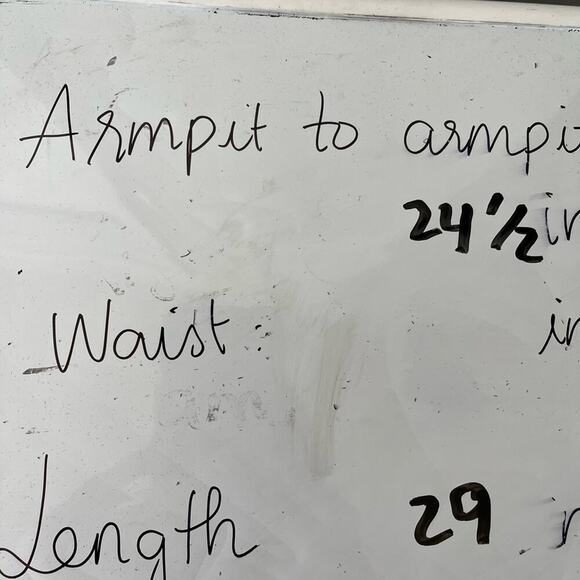 Armpit to armpi
24 1/2 in
Waist: in
Length 29